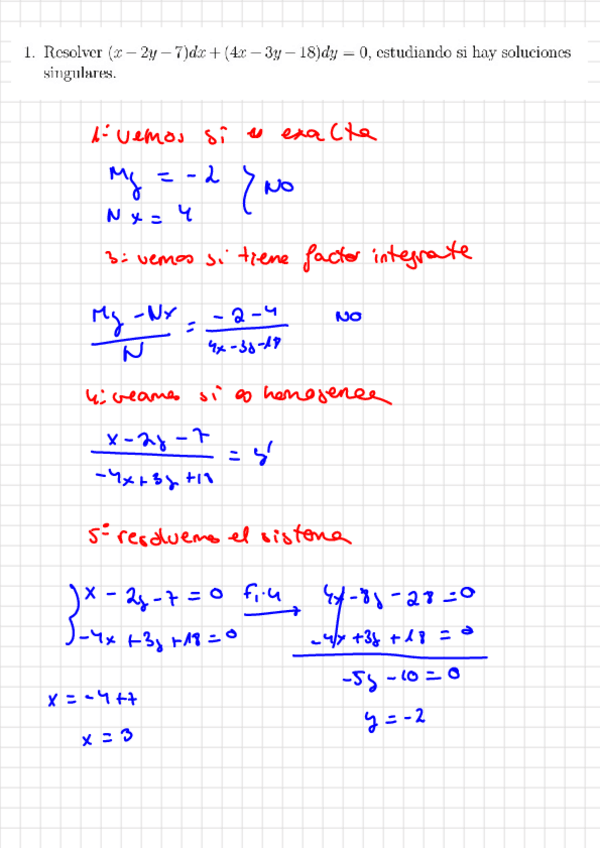 1. Resolver (x − 2y − 7)dx + (4x − 3y − 18)dy = 0, estudiando si hay soluciones
singulares.
1º vemos si es exacta
My = -2
Nx = 4 } NO
3º vemos si tiene factor integrate
(My - Nx)/N = (-2-4)/(4x-3y-18) NO
4º veamos si es homogenea
(x-2y-7)/(-4x+3y+18) = y'
5º resolvemo el sistema
{ x - 2y - 7 = 0 f1·4 → 4x - 8y - 28 = 0
-4x + 3y + 18 = 0 -4x + 3y + 18 = 0
-5y - 10 = 0
x = -4+7
y = -2
x = 3